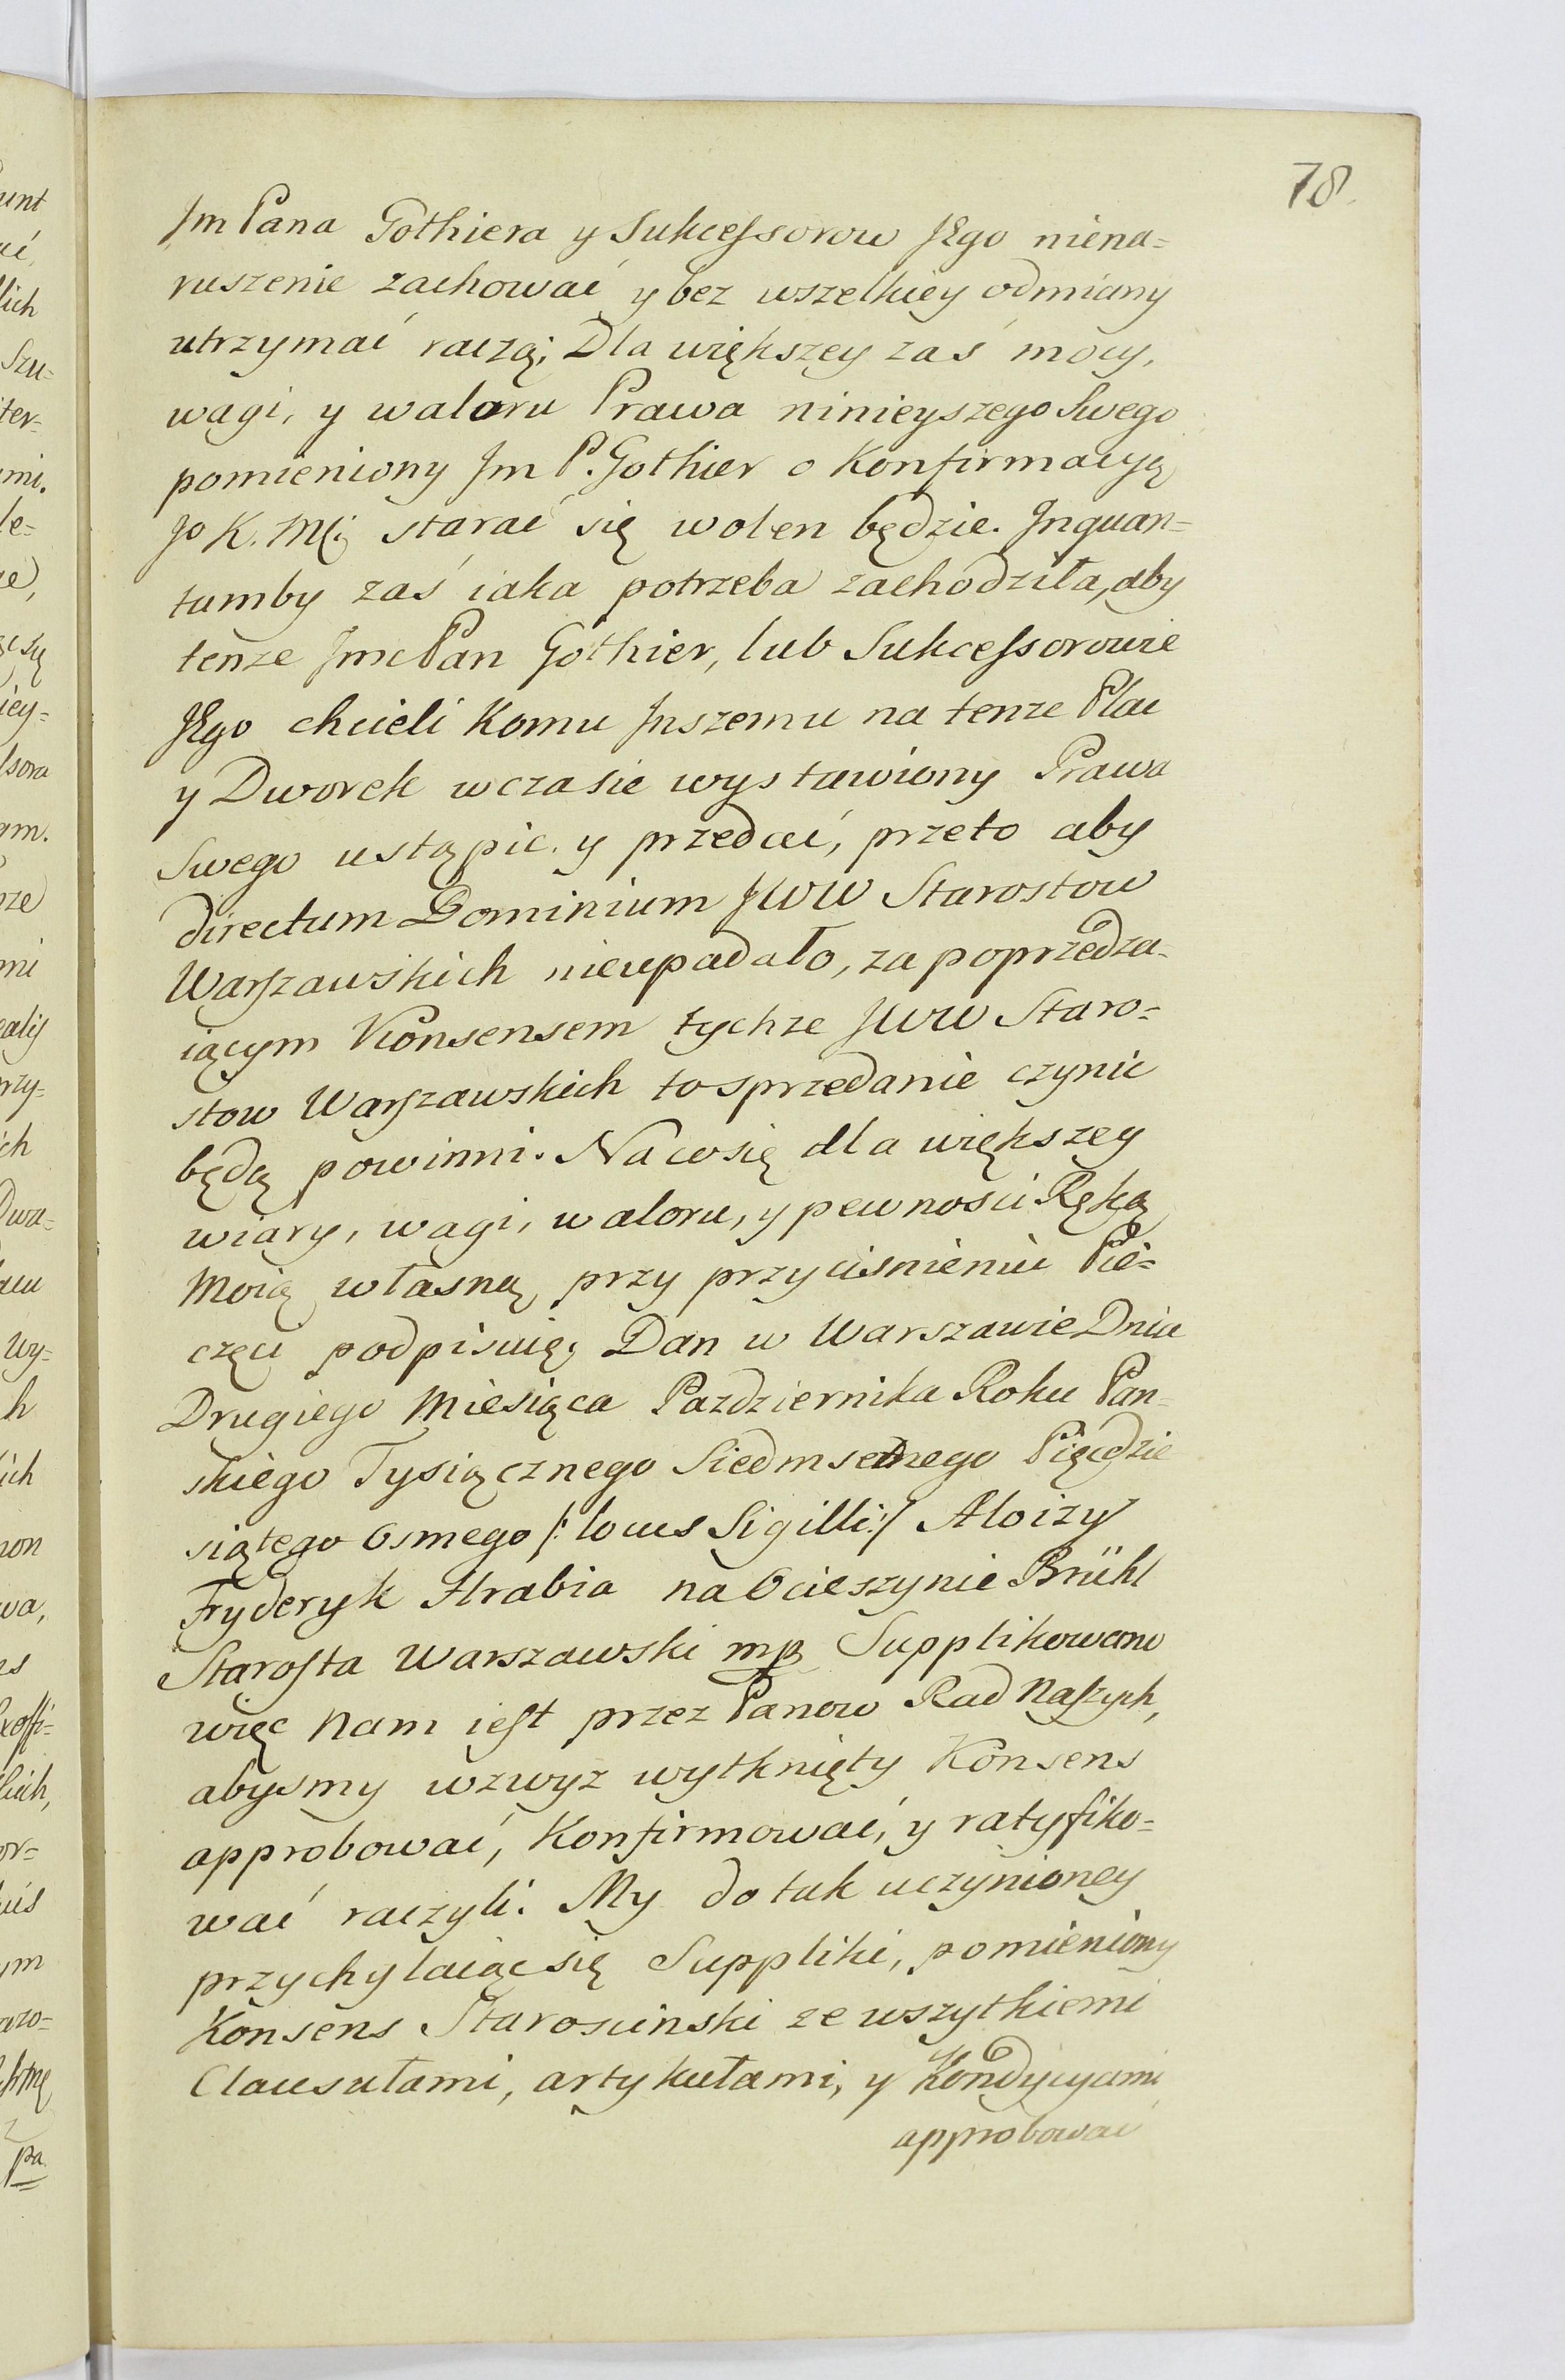 78.
Jm Pana Gothiera y Sukcessorow JEgo niena=
ruszenie zachować y bez wszelkiey odmiany
utrzymać raczą; Dla większey zaś mocy,
wagi, y waloru Prawa ninieyszego Swego
pomieniony Jm P. Gothier o Konfirmacyą
Jo K. Mci starać się wolen będzie. Jnquan=
tumby zaś iaka potrzeba zachodziła, aby
tenze Jmc Pan Gothier, lub Sukcessorowie
JEgo chcieli Komu Jnszemu na tenze Plac
y Dworek w czasie wystawiony Prawa
Swego ustąpic y przedać, przeto aby
directum Dominium JWW Starostow
Warszawskich nieupadało, za poprzedza=
iącym Konsensem tychze JWW Staro=
stow Warszawskich to sprzedanie czynic
będą powinni. Na co się dla większey
wiary, wagi, waloru, y pewnosci Ręką
Moią własną przy przycisnieniu Pie=
częci podpisuię, Dan w Warszawie Dnia
Drugiego Miesiąca Pazdziernika Roku Pan=
skiego Tysiącznego Siedmsetnego Pięcdzie
siątego Osmego /: locus Sigilli :/ Aloizy
Fryderyk Hrabia na Ocieszynie Brühl
Starosta Warszawski mp Supplikowano
więc Nam iest przez Panow Rad Naszych,
abysmy wzwyz wytknięty Konsens
approbować, Konfirmować, y ratyfiko=
wać raczyli. My do tak uczynioney
przychylaiąc się Suppliki, pomieniony
Konsens Staroscinski ze wszytkiemi
Clausułami, artykułami, y Kondycyami
approbować